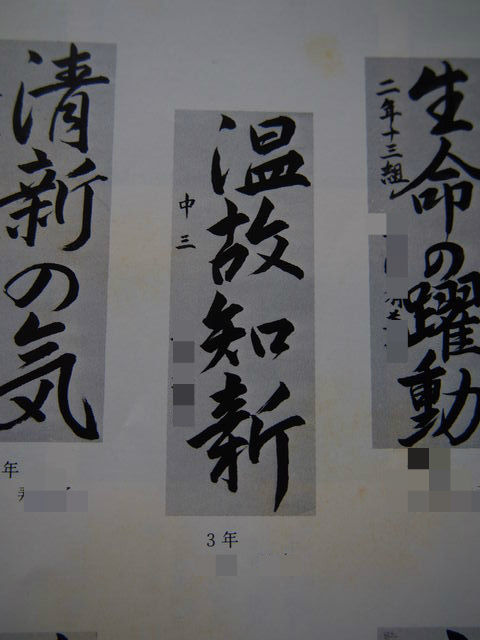 生命の躍動
二年十三組
温故知新
中三
3年
清新の気
年